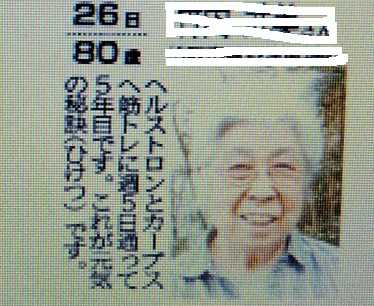 26日
80歳
ヘルストロンとカーブス
へ筋トレに週5日通って
5年目です。これが元気
の秘訣(ひけつ)です。